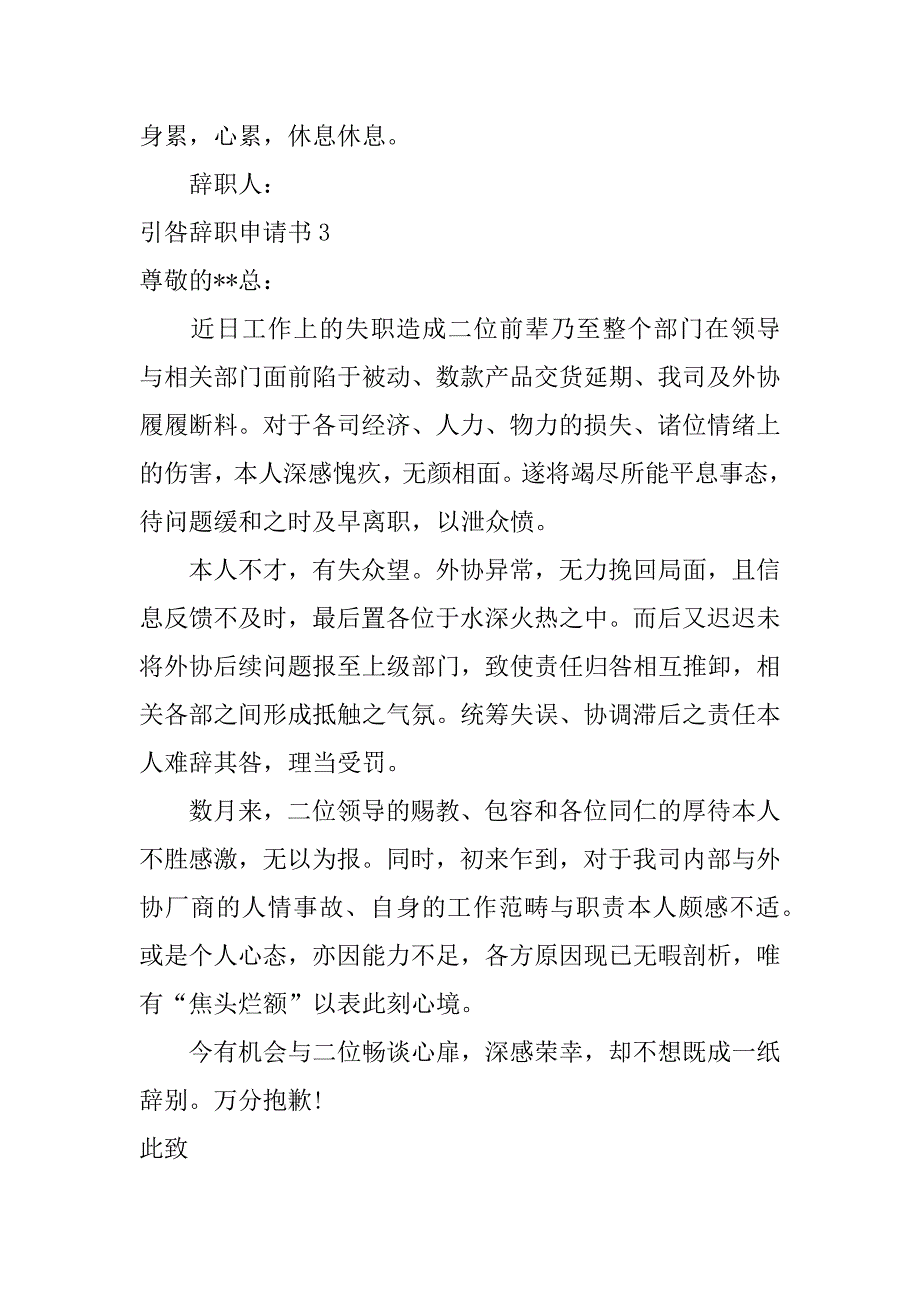 身累，心累，休息休息。
辞职人：
引咎辞职申请书 3
尊敬的**总：
近日工作上的失职造成二位前辈乃至整个部门在领导
与相关部门面前陷于被动、数款产品交货延期、我司及外协
履履断料。对于各司经济、人力、物力的损失、诸位情绪上
的伤害，本人深感愧疚，无颜相面。遂将竭尽所能平息事态，
待问题缓和之时及早离职，以泄众愤。
本人不才，有失众望。外协异常，无力挽回局面，且信
息反馈不及时，最后置各位于水深火热之中。而后又迟迟未
将外协后续问题报至上级部门，致使责任归咎相互推卸，相
关各部之间形成抵触之气氛。统筹失误、协调滞后之责任本
人难辞其咎，理当受罚。
数月来，二位领导的赐教、包容和各位同仁的厚待本人
不胜感激，无以为报。同时，初来乍到，对于我司内部与外
协厂商的人情事故、自身的工作范畴与职责本人颇感不适。
或是个人心态，亦因能力不足，各方原因现已无暇剖析，唯
有“焦头烂额”以表此刻心境。
今有机会与二位畅谈心扉，深感荣幸，却不想既成一纸
辞别。万分抱歉！
此致